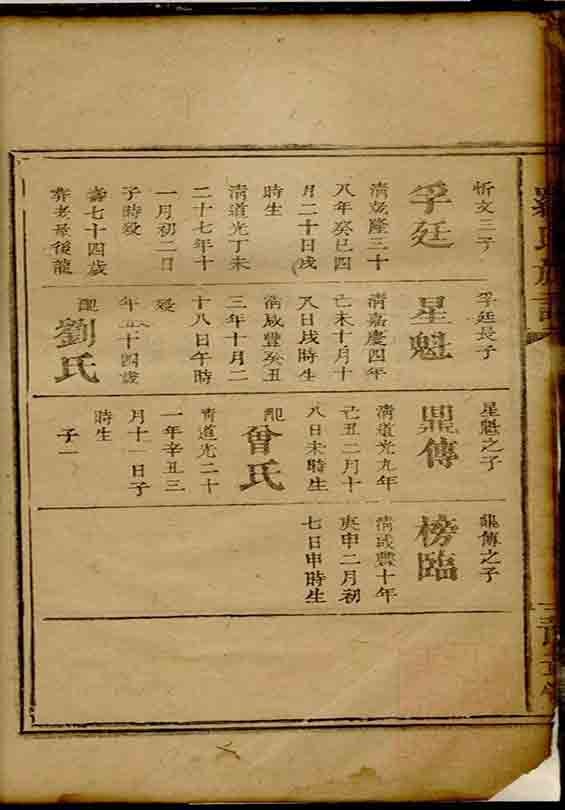 羅氏族譜
忻文三子
孚廷
清乾隆三十
八年癸巳四
月二十日戌
時生
清道光丁未
二十七年十
一月初二日
子時殁
壽七十四歲
葬老屋後龍
孚廷長子
星魁
清嘉慶四年
己未十月十
八日戌時生
清咸豐癸丑
三年十月二
十八日午時
殁
年五十四歲
配
劉氏
星魁之子
鼎傳
清道光九年
己丑二月十
八日未時生
配
曾氏
清道光二十
一年辛丑三
月十一日子
時生
子一
鼎傳之子
榜臨
清咸豐十年
庚申二月初
七日申時生